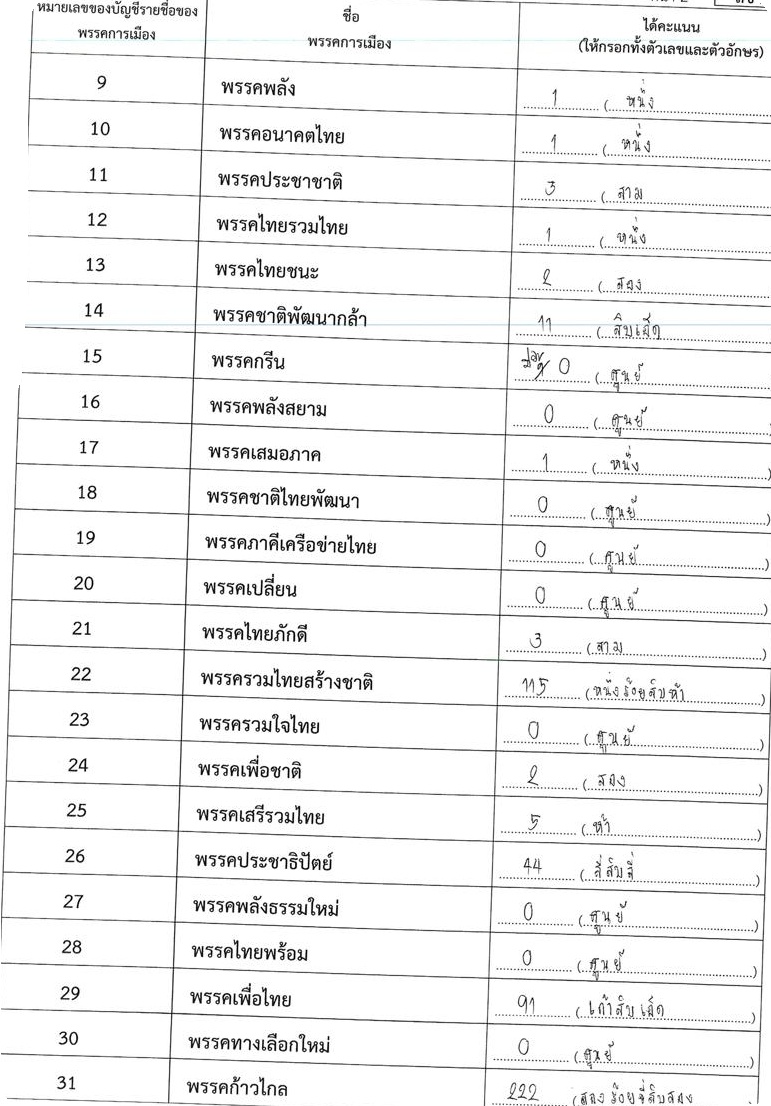 หมายเลขของบัญชีรายชื่อของ ชื่อ ได้คะแนน
พรรคการเมือง พรรคการเมือง (ให้กรอกทั้งตัวเลขและตัวอักษร)
9 พรรคพลัง 1 ( หนึ่ง
10 พรรคอนาคตไทย 1 ( หนึ่ง
11 พรรคประชาชาติ 3 ( สาม
12 พรรคไทยรวมไทย 1 ( หนึ่ง
13 พรรคไทยชนะ 2 ( สอง
14 พรรคชาติพัฒนากล้า 11 ( สิบเอ็ด
15 พรรคกรีน 0 ( ศูนย์
16 พรรคพลังสยาม 0 ( ศูนย์ )
17 พรรคเสมอภาค 1 ( หนึ่ง )
18 พรรคชาติไทยพัฒนา 0 ( ศูนย์ )
19 พรรคภาคีเครือข่ายไทย 0 ( ศูนย์ )
20 พรรคเปลี่ยน 0 ( ศูนย์ )
21 พรรคไทยภักดี 3 ( สาม )
22 พรรครวมไทยสร้างชาติ 115 ( หนึ่งร้อยสิบห้า )
23 พรรครวมใจไทย 0 ( ศูนย์ )
24 พรรคเพื่อชาติ 2 ( สอง )
25 พรรคเสรีรวมไทย 5 ( ห้า )
26 พรรคประชาธิปัตย์ 44 ( สี่สิบสี่ )
27 พรรคพลังธรรมใหม่ 0 ( ศูนย์ )
28 พรรคไทยพร้อม 0 ( ศูนย์ )
29 พรรคเพื่อไทย 91 ( เก้าสิบเอ็ด )
30 พรรคทางเลือกใหม่ 0 ( ศูนย์ )
31 พรรคก้าวไกล 222 ( สองร้อยยี่สิบสอง